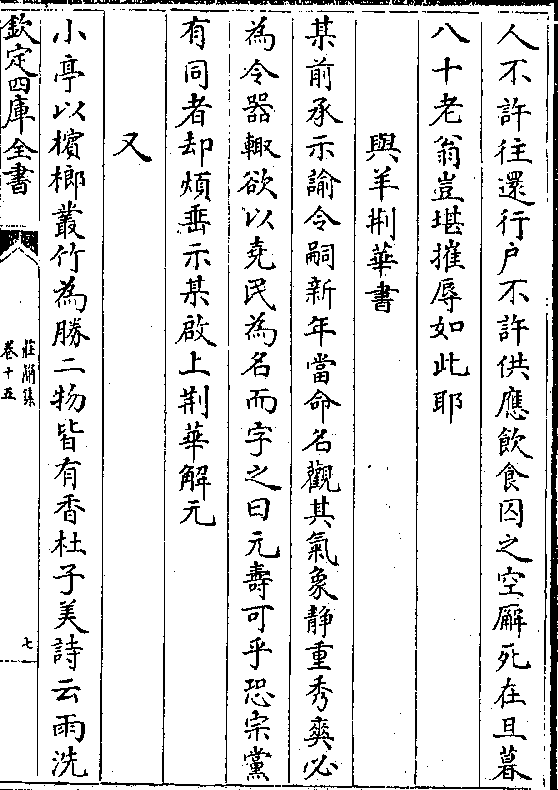 人不許往還行户不許供應飲食囚之空廨死在旦暮
八十老翁豈堪摧辱如此耶
與羊荆華書
某前承示諭令嗣新年當命名觀其氣象静重秀爽必
為令器輙欲以堯民為名而字之曰元壽可乎恐宗黨
有同者却煩垂示某啟上荆華解元
又
小亭以檳榔叢竹為勝二物皆有香杜子美詩云雨洗
欽定四庫全書
莊簡集
卷十五
七